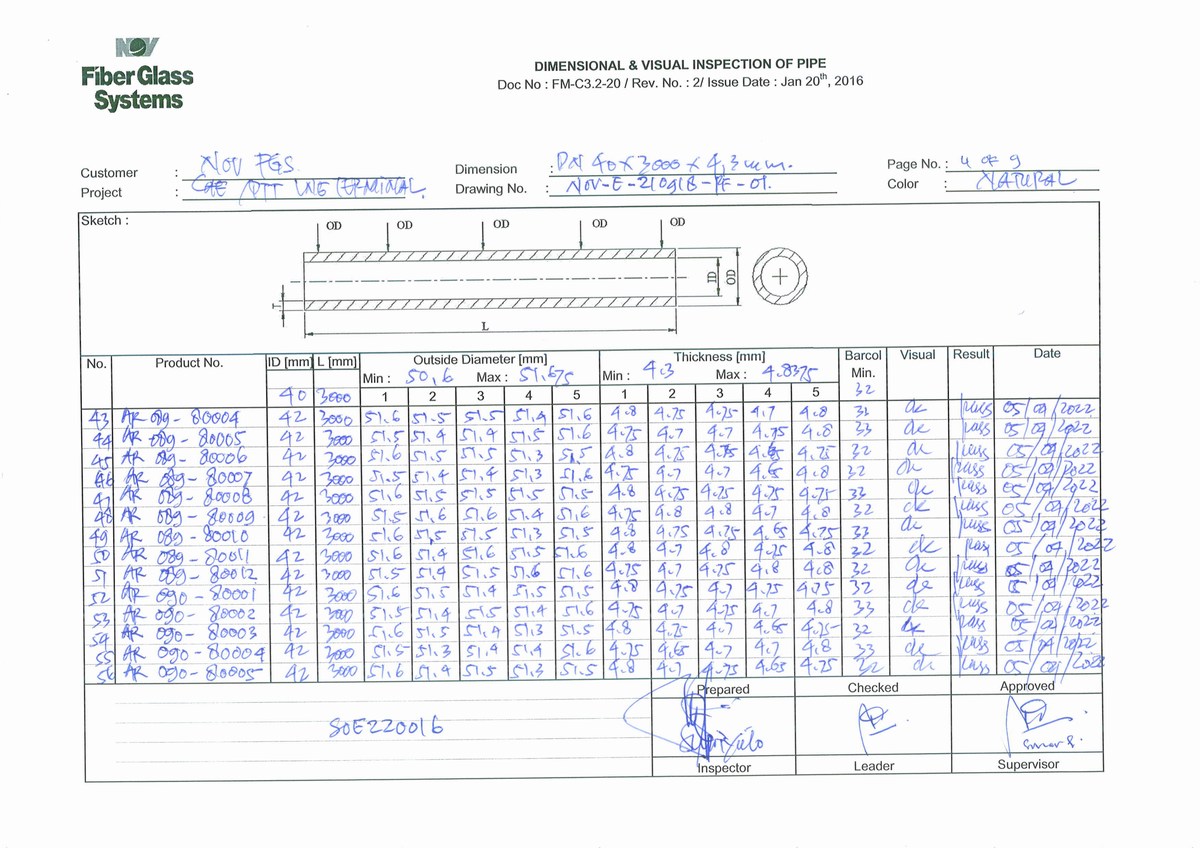 NOV
Fiber Glass
Systems
DIMENSIONAL & VISUAL INSPECTION OF PIPE
Doc No : FM-C3.2-20 / Rev. No. : 2/ Issue Date : Jan 20th, 2016
Customer : NOV FGS. Dimension : DN 40 x 3000 x 4,3 mm. Page No. : 4 of 9
Project : PTT LNG TERMINAL Drawing No. : NOV-E-21091B-PF-01. Color : NATURAL
Sketch :
OD OD OD OD OD
ID OD
T
L
No. Product No. ID [mm] L [mm] Outside Diameter [mm] Thickness [mm] Barcol Visual Result Date
Min : 50,6 Max : 51.675 Min : 4.3 Max : 4.8375 Min.
40 3000 1 2 3 4 5 1 2 3 4 5 32
43 AR 089-80004 42 3000 51.6 51.5 51.5 51.4 51.6 4.8 4.75 4.75 4.7 4.8 ok pass 05/09/2022
44 AR 089-80005 42 3000 51.5 51.4 51.4 51.5 51.6 4.75 4.7 4.7 4.75 4.8 33 ok pass 05/09/2022
45 AR 089-80006 42 3000 51.6 51.5 51.5 51.3 51.5 4.8 4.75 4.75 4.65 4.75 32 ok pass 05/09/2022
46 AR 089-80007 42 3000 51.5 51.4 51.4 51.3 51.6 4.75 4.7 4.7 4.65 4.8 32 ok pass 05/09/2022
47 AR 089-80008 42 3000 51.6 51.5 51.5 51.5 51.5 4.8 4.75 4.75 4.75 4.75 33 ok pass 05/09/2022
48 AR 089-80009 42 3000 51.5 51.6 51.6 51.4 51.6 4.75 4.8 4.8 4.7 4.8 32 ok pass 05/09/2022
49 AR 089-80010 42 3000 51.6 51.5 51.5 51.3 51.5 4.8 4.75 4.75 4.65 4.75 33 ok pass 05/09/2022
50 AR 089-80011 42 3000 51.6 51.4 51.6 51.5 51.6 4.8 4.7 4.8 4.75 4.8 32 ok pass 05/09/2022
51 AR 089-80012 42 3000 51.5 51.4 51.5 51.6 51.6 4.75 4.7 4.75 4.8 4.8 32 ok pass 05/09/2022
52 AR 090-80001 42 3000 51.6 51.5 51.4 51.5 51.5 4.8 4.75 4.7 4.75 4.75 32 ok pass 05/09/2022
53 AR 090-80002 42 3000 51.5 51.4 51.5 51.4 51.6 4.75 4.7 4.75 4.7 4.8 33 ok pass 05/09/2022
54 AR 090-80003 42 3000 51.6 51.5 51.4 51.3 51.5 4.8 4.75 4.7 4.65 4.75 32 ok pass 05/09/2022
55 AR 090-80004 42 3000 51.5 51.3 51.4 51.4 51.6 4.75 4.65 4.7 4.7 4.8 33 ok pass 05/09/2022
56 AR 090-80005 42 3000 51.6 51.4 51.5 51.3 51.5 4.8 4.7 4.75 4.65 4.75 32 ok pass 05/09/2022
Prepared Checked Approved
SOE220016
Inspector Leader Supervisor